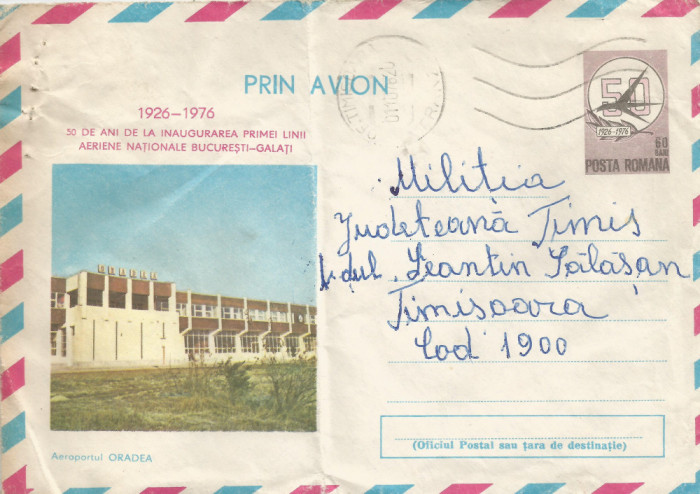 PRIN AVION
1926-1976
50 DE ANI DE LA INAUGURAREA PRIMEI LINII
AERIENE NAȚIONALE BUCUREȘTI-GALAȚI
50
1926-1976
60
BANI
POSTA ROMANA
Miliția
Județeană Timiș
Leantin Sălăšan
Timisoara
Cod 1900
(Oficiul Postal sau țara de destinație)
Aeroportul ORADEA